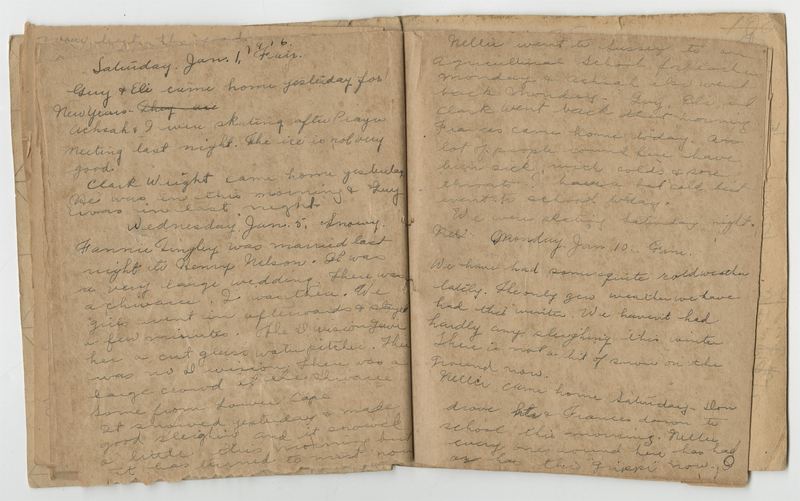 Saturday. Jan. 1, 1916. Fair.
Guy & Eli came home yesterday for
New Years. They are
Achsah & I were skating after Prayer
Meeting last night. The ice is not very
good.
Clark Wright came home yesterday
He was in this morning & Guy
Eli was in last night
Wednesday, Jan. 5, Snowy.
Fannie Tingley was married last
night to Henry Nelson. It was
a very large wedding. There was
a chivaree. I was there. We
girls went in afterwards & stayed
a few minutes. The Division gave
her a cut glass water pitcher. There
was no Division. There was a
large crowd at the Chivaree
some from Lower Cape
It snowed yesterday & made
good sleighing and it snowed
a little this morning but
it has turned to mist now
Nellie went to Sussex to an
Agricultural School for teachers
Monday & Achsah also went
back Monday. Guy, Eli, and
Clark went back that morning
Frances came home today. An
lot of people round here have
been sick with colds & sore
throat. I have a bad cold but
went to school today.
We were skating Saturday night.
Monday Jan. 10. Fine.
We have had some quite cold weather
lately. The only good weather we have
had this winter. We haven't had
hardly any sleighing this winter
There is not a bit of snow on the
ground now.
Nellie came home Saturday. Don
drove her & Frances down to
school this morning. Nellie
every one around here has had
or has the Grippe now.